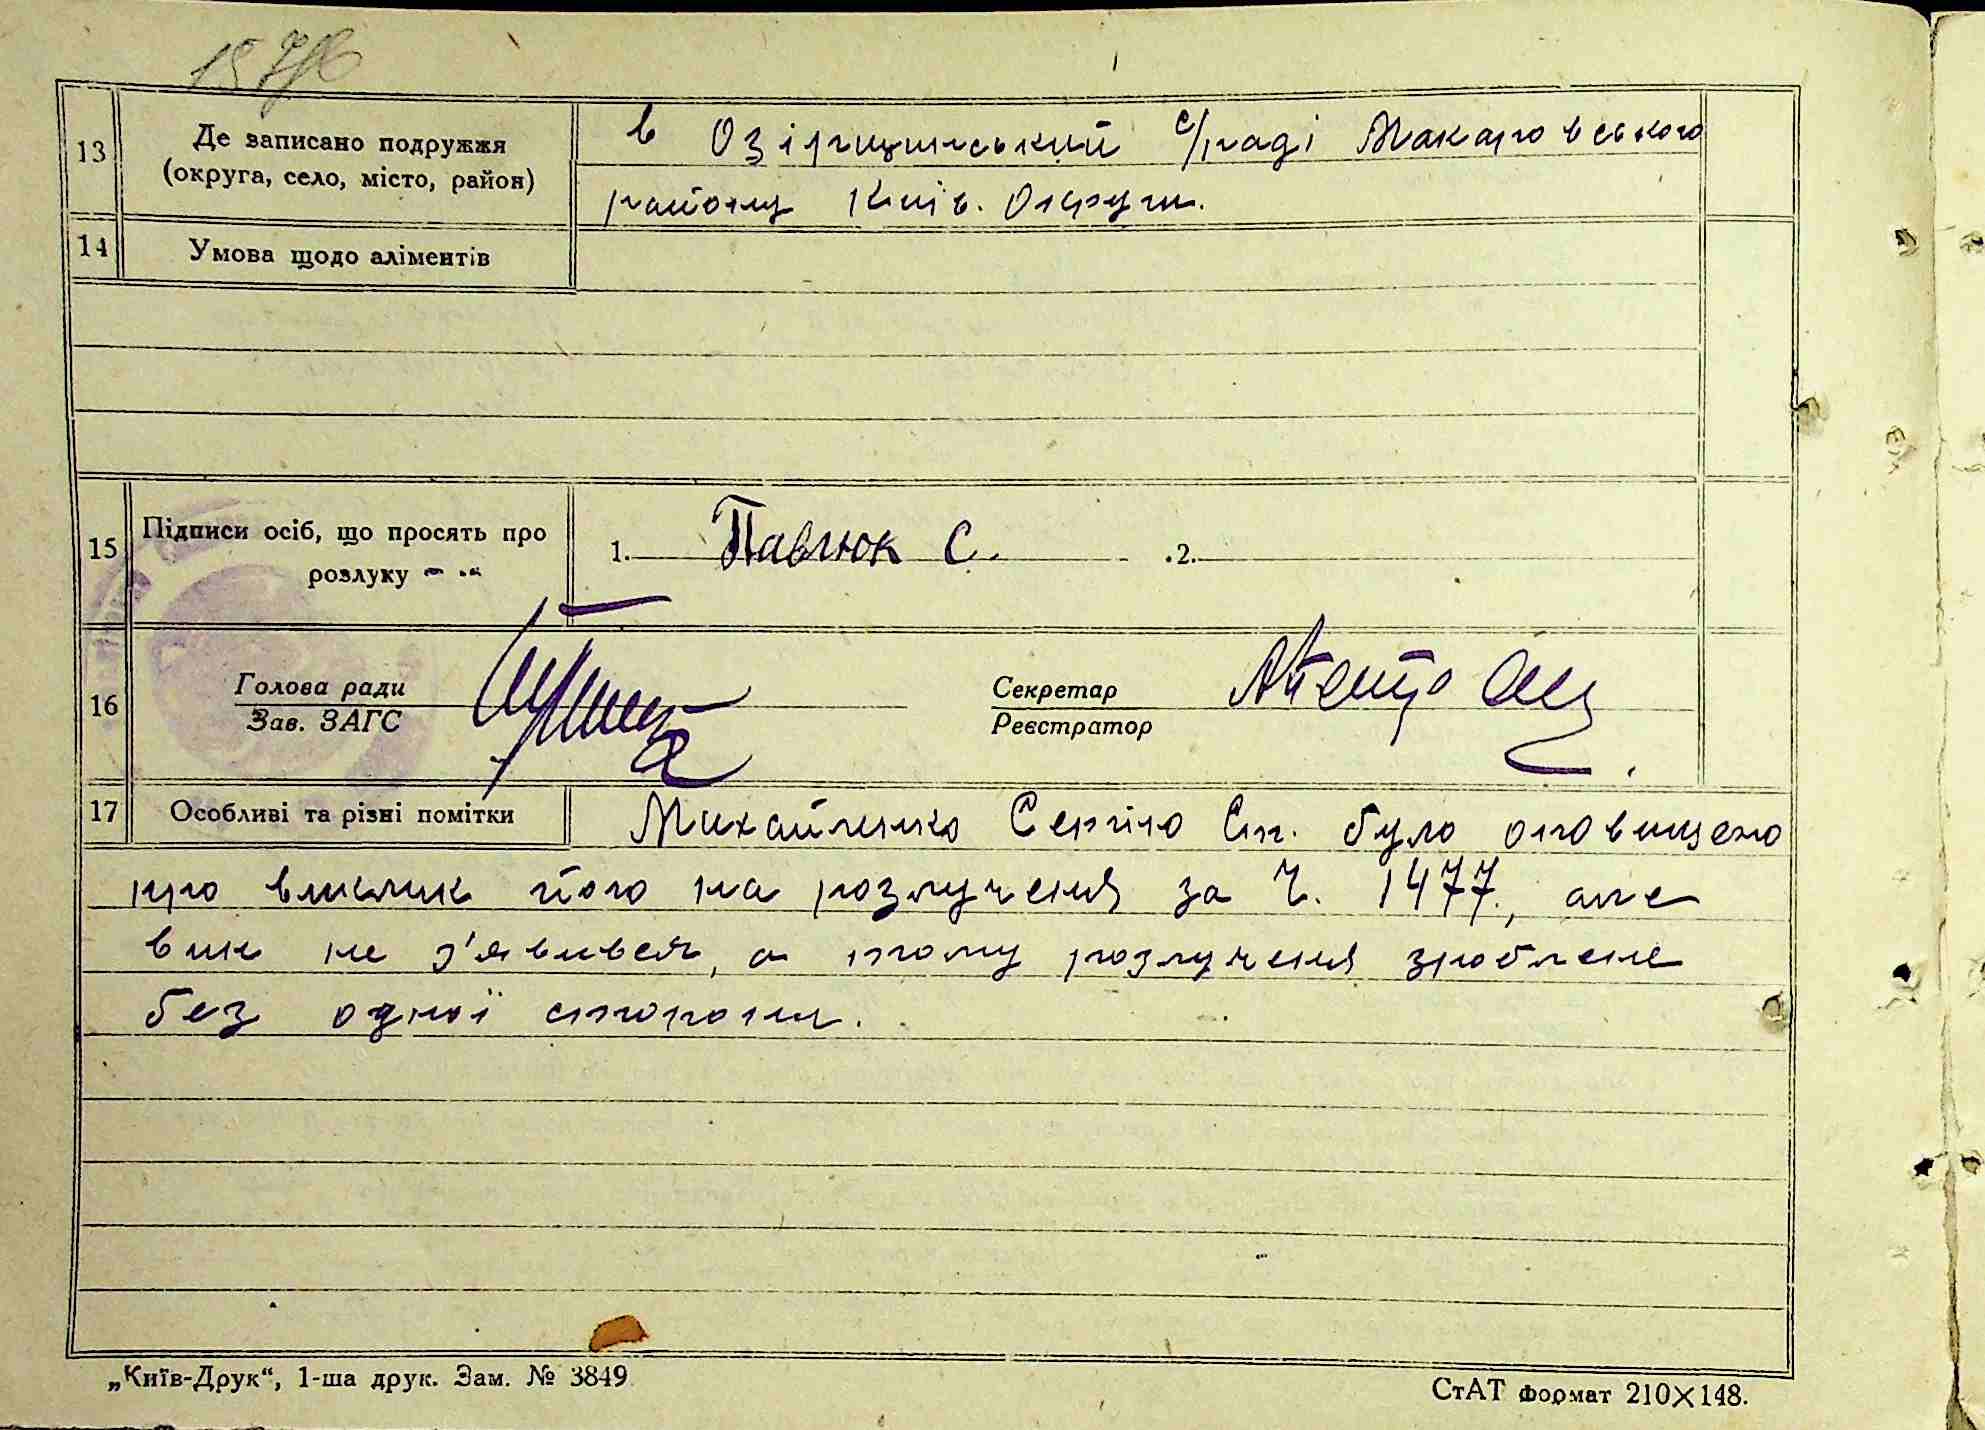 13
Де записано подружжя
(округа, село, місто, район)
в Озірщинський с/раді Макаровського
району Київ. Округи.
14
Умова щодо аліментів
15
Підписи осіб, що просять про
розлуку
1. Павлюк С. 2.
16
Голова ради
Зав. ЗАГС
Секретар
Реєстратор
17
Особливі та різні помітки
Михайленко Сергію Ст. було оповищено
про виклик його на розлучення за Ч. 1477, але
вин не з'явився, а тому розлучення зроблене
без одної сторони.
„Київ-Друк“, 1-ша друк. Зам. № 3849
СтАТ формат 210×148.